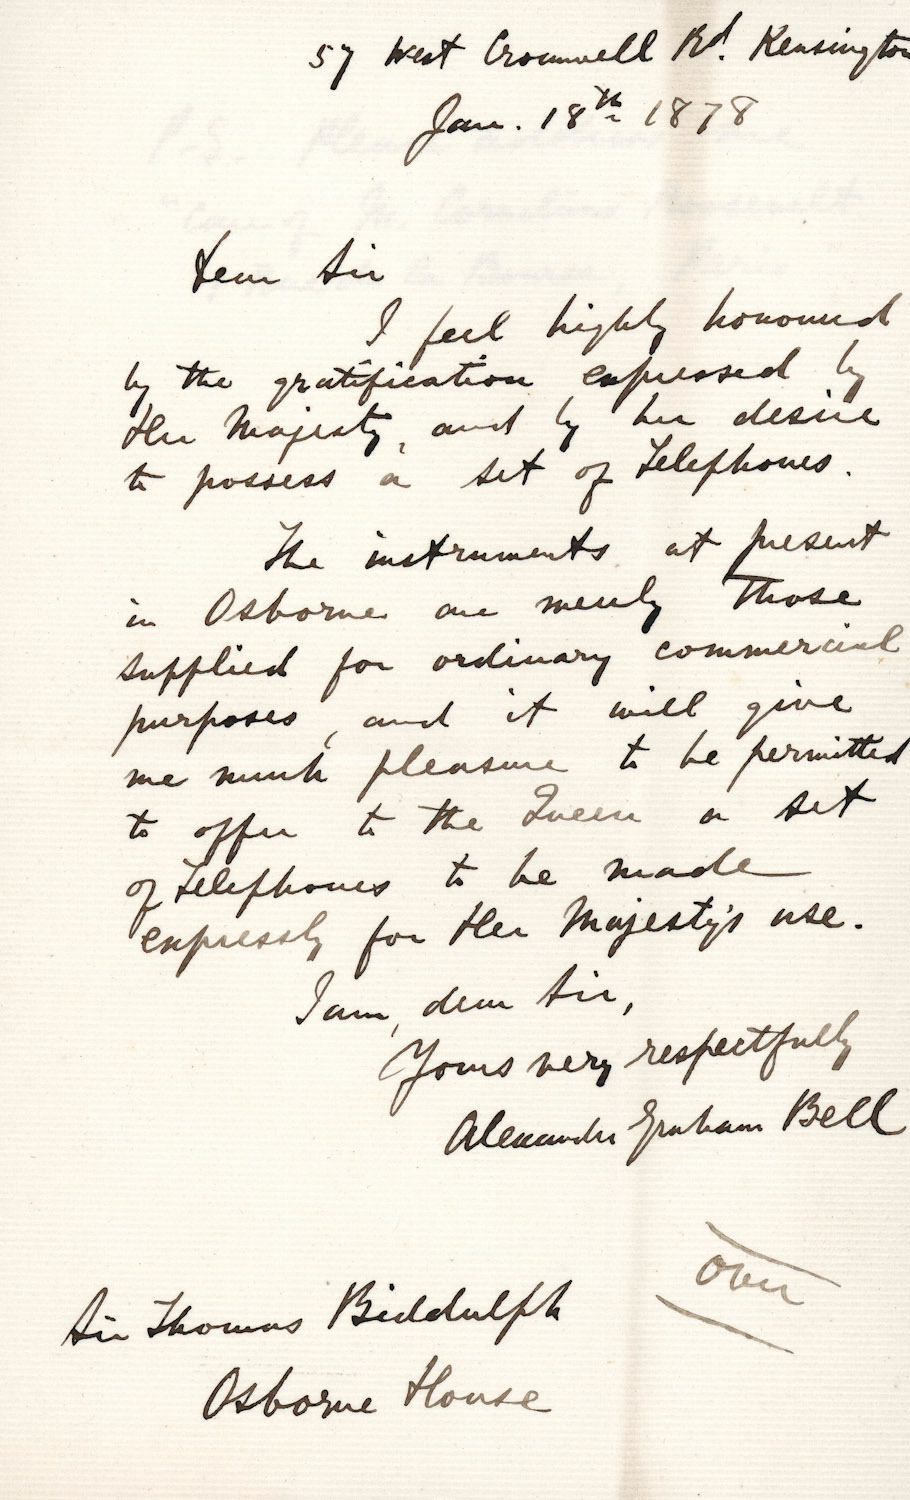 57 West Cromwell Rd. Kensington
Jan. 18th 1878
Dear Sir
I feel highly honoured
by the gratification expressed by
Her Majesty, and by her desire
to possess a set of Telephones.
The instruments at present
in Osborne are merely those
supplied for ordinary commercial
purposes, and it will give
me much pleasure to be permitted
to offer to the Queen a set
of Telephones to be made
expressly for Her Majesty's use.
I am, dear Sir,
Yours very respectfully
Alexander Graham Bell
over
Sir Thomas Biddulph
Osborne House